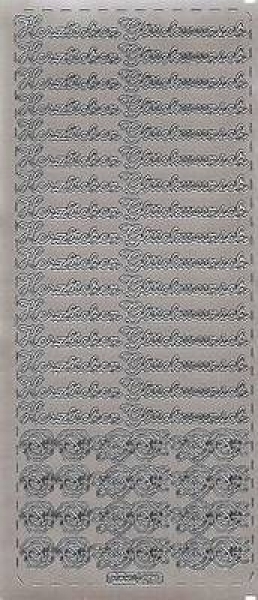 Herzlichen Glückwunsch
Herzlichen Glückwunsch
Herzlichen Glückwunsch
Herzlichen Glückwunsch
Herzlichen Glückwunsch
Herzlichen Glückwunsch
Herzlichen Glückwunsch
Herzlichen Glückwunsch
Herzlichen Glückwunsch
Herzlichen Glückwunsch
Herzlichen Glückwunsch
Herzlichen Glückwunsch
Herzlichen Glückwunsch
Herzlichen Glückwunsch
Herzlichen Glückwunsch
Herzlichen Glückwunsch